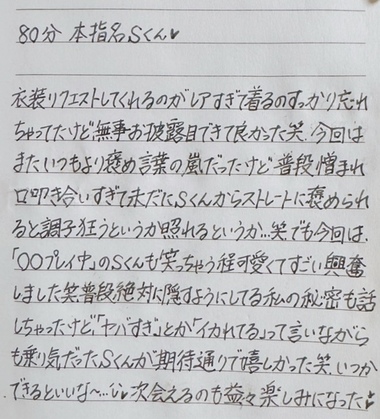 80分 本指名Sくん♥
衣装リクエストしてくれるのがレアすぎて着るのすっかり忘れ
ちゃってたけど無事お披露目できて良かった笑 今回は
またいつもより褒め言葉の嵐だったけど普段憎まれ
口叩き合いすぎて未だにSくんからストレートに褒められ
ると調子狂うというか照れるというか…笑でも今回は、
「〇〇プレイ中」のSくんも笑っちゃう程可愛くてすごい興奮
しました笑普段絶対に隠すようにしてる私の秘密も話
しちゃったけど「ヤバすぎ」とか「イカれてる」って言いながら
も乗り気だったSくんが期待通りで嬉しかった笑 いつか
できるといいな〜…♡次会えるのも益々楽しみになった♥